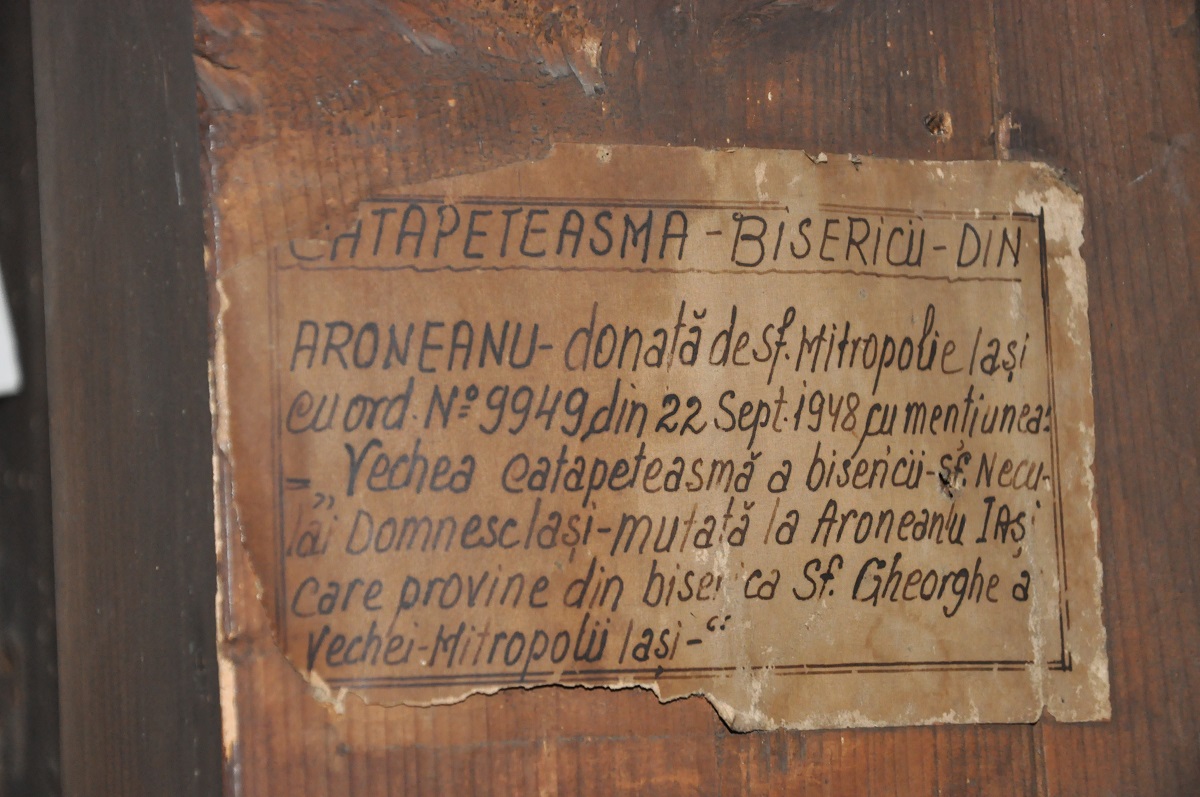 CATAPETEASMA-BISERICII-DIN
ARONEANU-donată de sf. Mitropolie Iași
cu ord. Nº 9949 din 22 Sept. 1948 cu mențiunea:
=„Vechea catapeteasmă a bisericii-sf. Necu-
lai Domnesc Iași-mutată la Aroneanu IAși
care provine din biserica Sf. Gheorghe a
Vechei-Mitropolii Iași-“